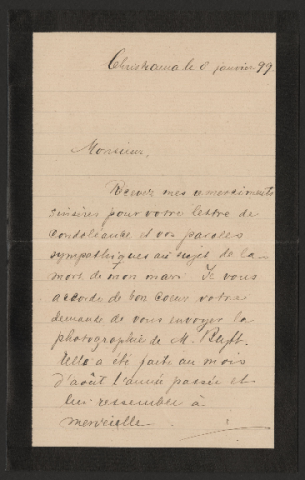 Christiania le 8 janvier 99
Monsieur,
Recevez mes remerciments
sinsères pour votre lettre de
condoléance et vos paroles
sympathiques au sujet de la
mort de mon mari. Je vous
accorde de bon coeur votre
demande de vous envoyer la
photographie de M.
Elle a été faite au mois
d'août l'année passée et
lui ressemble à
merveille.